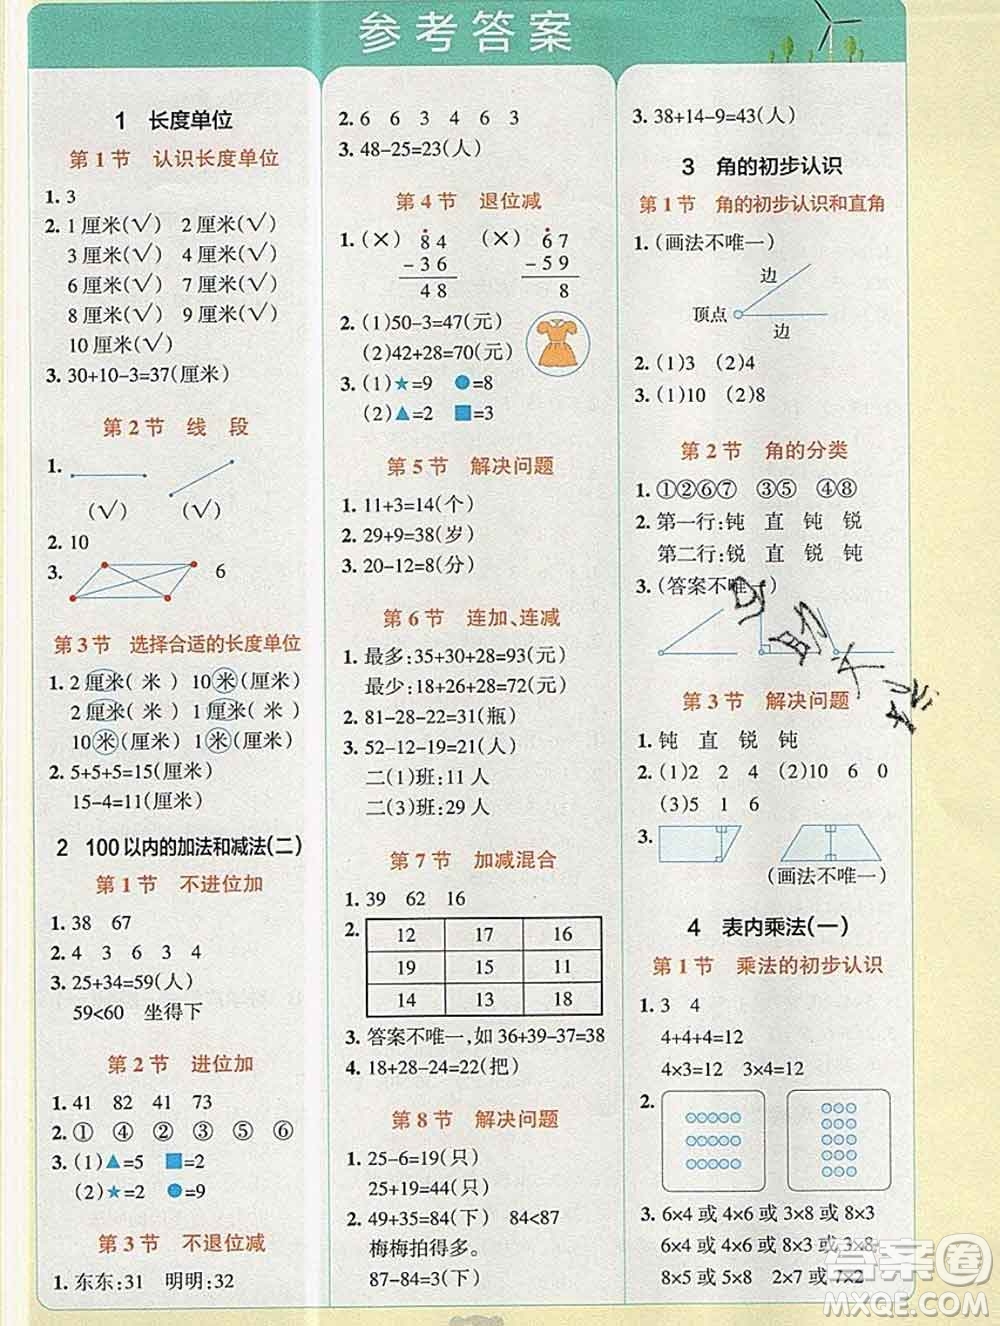 参考答案
1 长度单位
第1节 认识长度单位
1. 3
2. 1厘米(√) 2厘米(√)
3厘米(√) 4厘米(√)
6厘米(√) 7厘米(√)
8厘米(√) 9厘米(√)
10厘米(√)
3. 30+10-3=37(厘米)
第2节 线 段
1.
(√) (√)
2. 10
3. 6
第3节 选择合适的长度单位
1. 2厘米(米) 10米(厘米)
2厘米(米) 1厘米(米)
10米(厘米) 1米(厘米)
2. 5+5+5=15(厘米)
15-4=11(厘米)
2 100以内的加法和减法(二)
第1节 不进位加
1. 38 67
2. 4 3 6 3 4
3. 25+34=59(人)
59<60 坐得下
第2节 进位加
1. 41 82 41 73
2. ① ④ ② ③ ⑤ ⑥
3. (1)▲=5 ■=2
(2)★=2 ●=9
第3节 不退位减
1. 东东:31 明明:32
2. 6 6 3 4 6 3
3. 48-25=23(人)
第4节 退位减
1. (×) 84 (×) 67
-36 -59
48 8
2. (1)50-3=47(元)
(2)42+28=70(元)
3. (1)★=9 ●=8
(2)▲=2 ■=3
第5节 解决问题
1. 11+3=14(个)
2. 29+9=38(岁)
3. 20-12=8(分)
第6节 连加、连减
1. 最多:35+30+28=93(元)
最少:18+26+28=72(元)
2. 81-28-22=31(瓶)
3. 52-12-19=21(人)
二(1)班:11人
二(3)班:29人
第7节 加减混合
1. 39 62 16
2. 12 17 16
19 15 11
14 13 18
3. 答案不唯一,如36+39-37=38
4. 18+28-24=22(把)
第8节 解决问题
1. 25-6=19(只)
25+19=44(只)
2. 49+35=84(下) 84<87
梅梅拍得多。
87-84=3(下)
3. 38+14-9=43(人)
3 角的初步认识
第1节 角的初步认识和直角
1. (画法不唯一)
边
顶点
边
2. (1)3 (2)4
3. (1)10 (2)8
第2节 角的分类
1. ①②⑥⑦ ③⑤ ④⑧
2. 第一行:钝 直 钝 锐
第二行:锐 直 锐 钝
3. (答案不唯一)
第3节 解决问题
1. 钝 直 锐 钝
2. (1)2 2 4 (2)10 6 0
(3)5 1 6
3.
(画法不唯一)
4 表内乘法(一)
第1节 乘法的初步认识
1. 3 4
4+4+4=12
4×3=12 3×4=12
2.
3. 6×4或4×6 3×8或8×3
6×4或4×6 5×4或4×5
8×5或5×8 2×7或7×2
答案圈
MXQE.COM